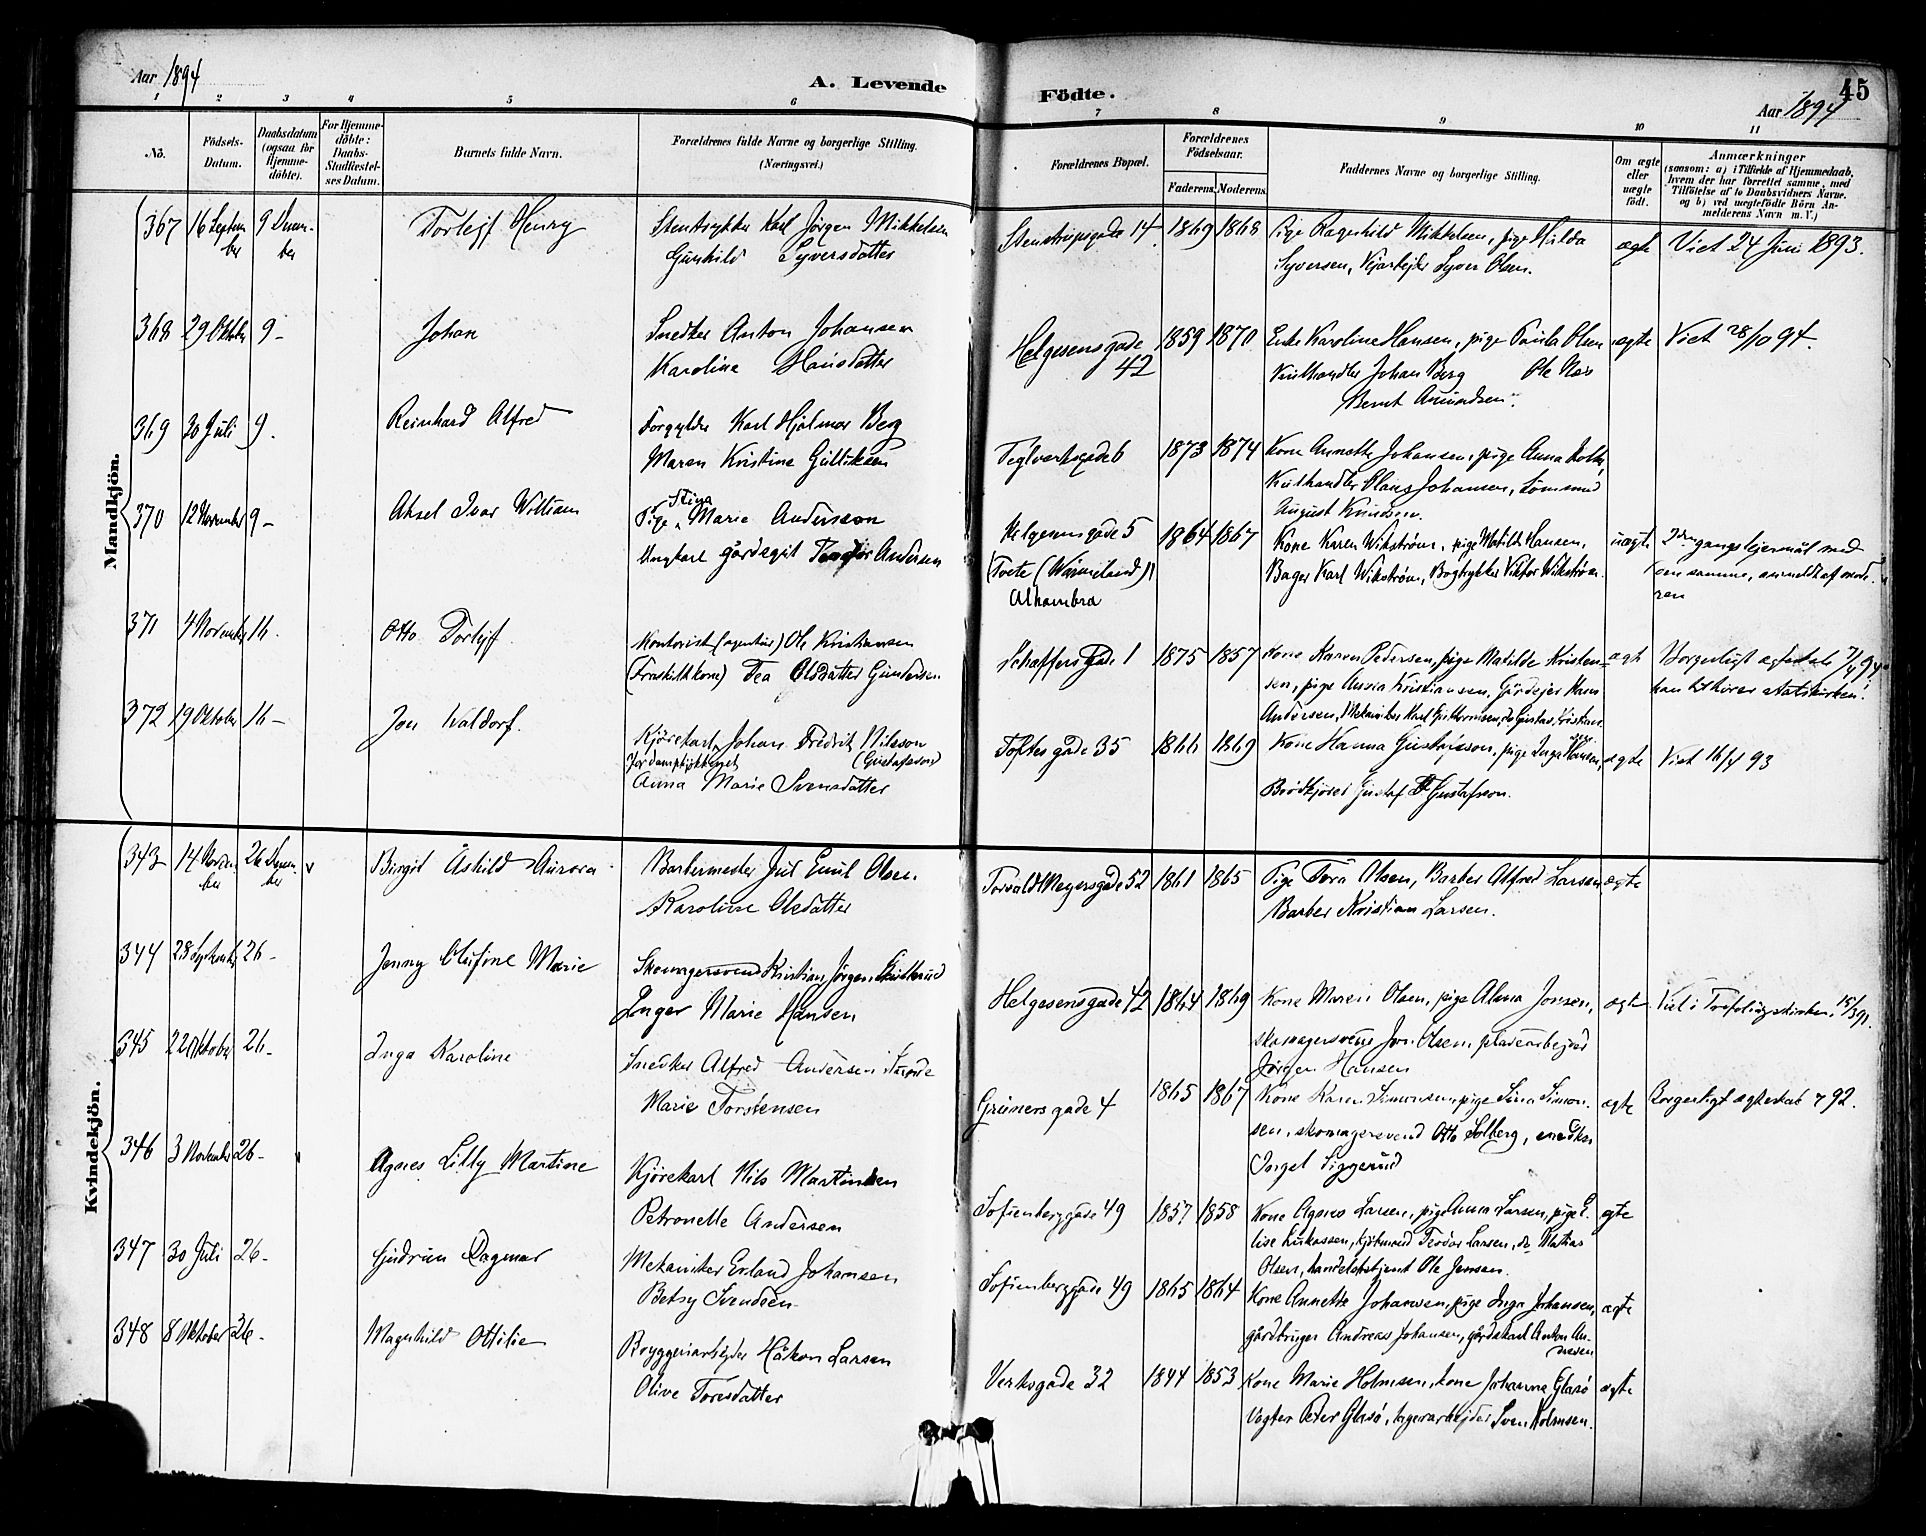 Aar 1894
A. Levende Födte.
45
Aar 1894
1 2 3 4 5 6 7 8 9 10 11
No.
Födsels-Datum.
Daabsdatum (ogsaa for Hjemme-döbte).
For Hjemme-döbte: Daabs-Stadfæstel-ses Datum.
Barnets fulde Navn.
Forældrenes fulde Navne og borgerlige Stilling. (Næringsvei.)
Forældrenes Bopæl.
Forældrenes Födselsaar.
Faderens. Moderens.
Faddernes Navne og borgerlige Stilling.
Om ægte eller uægte födt.
Anmærkninger
(saasom: a) i Tilfælde af Hjemmedaab, hvem der har forrettet samme, med Tilföielse af to Daabsvidners Navne. og b) ved uægtefödte Börn Anmelderens Navn m. V.)
Mandkjön.
367 16 September 9 December Torleif Henry Stentrykker Karl Jörgen Mikkelsen Stenstrupsgade 14. 1869 1868 Pige Ragnhild Mikkelsen, pige Hulda ægte Viet 24 Juni 1893.
Gunhild Syversdatter Syversen, Syver Olsen.
368 29 Oktober 9 - Johan Snedker Anton Johansen Helgesensgade 42 1859 1870 Enke Karoline Hansen, pige Paula Olsen ægte Viet 28/10 94.
Karoline Hansdatter Kulhandler Johan Berg Ole Næs
Bernt Amundsen.
369 30 Juli 9. Reinhard Alfred Forgylder Karl Hjalmar Berg Teglverksgade 6 1873 1874 Kone Annette Johansen, pige Anna Holter,
Maren Kristine Gulliksen Kulhandler Claus Johansen, tömmermd
August Knudsen.
370 12 November 9 - Aksel Ivar William Pige Stina Marie Andersson Helgesensgade 5 1864 1867 Kone Karen Wikström, pige Matilde Hansen, uægte 2den gangs lejermål med
Ungkarl gårdsgut Teodor Andersen (Tveta (Wärmeland)) Bager Karl Wikström, Bogtrykker Viktor Wikström. den samme, anmeldt af moderen
Alhambra
371 4 November 16. Otto Torleif. Kontorist (agentur) Ole Kristiansen Schaffers gade 1 1875 1857 Kone Karen Pedersen, pige Matilde Kristen- ægte Borgerligt ægteskab 7/4 94
(Fraskilt kone) Tea Olsdatter Gundersen sen, pige Anna Kristiansen, Gårdejer Hans
Andersen, Mekaniker Karl Guttormsen, do Gustav Kristiansen
372 19 Oktober 16 - Jon Waldorf. Kjörekarl Johan Fredrik Nilsson Toftes gade 35 1866 1869 Kone Hanna Gustafsson, pige Inga Hansen, ægte Viet 16/4 93
(Gustafsson)
Anna Marie Svensdatter Brödkjörer Gustaf Gustafsson.
Kvindekjön.
343 14 November 26 December v Birgit Åshild Aurora Barbermester Jul Emil Olsen Torvald Meyersgade 52 1861 1865 Pige Tora Olsen, Barber Alfred Larsen ægte
Karoline Olsdatter Barber Kristian Larsen.
344 28 September 26 - Jenny Olufine Marie Skomagersvend Kristian Jörgen Helgesensgade 42 1864 1869 Kone Maren Olsen, pige Alma Jonsen, ægte Viet i Trefoldighedskirken 15/3 91.
Inger Marie Hansen skomagersvend Jon Olsen, pladsarbejder
Jörgen Hansen
345 22 Oktober 26 - Inga Karoline Snedker Alfred Andersen Grüners gade 4 1865 1867 Kone Karen Simonsen, pige Lina Simon- ægte Borgerligt ægteskab 92.
Marie Torstensen sen, skomagersvend Otto Solberg, snedker
Ingel Siggerud
346 3 November 26 - Agnes Lilly Martine Kjörekarl Nils Martinsen Sofienberggade 49 1857 1858 Kone Agnes Larsen, pige Anna Larsen, pige E- ægte
Petronelle Andersen lise Lukassen, kjöbmand Teodor Larsen, do Matias
Olsen, handelsbetjent Ole Jensen.
347 30 Juli 26 - Gudrun Dagmar Mekaniker Erland Johansen Sofienberggade 49 1865 1864 Kone Annette Johansen, pige Inga Johansen, ægte
Betsy Svendsen gårdbruger Andreas Johansen, gårdskarl Anton An-
dresen
348 8 Oktober 26 - Magnhild Ottilie Bryggeriarbejder Håkon Larsen Verksgade 32 1844 1853 Kone Marie Holmsen, kone Johanna Glasö ægte
Olive Toresdatter Vagter Peter Glasö, lagerarbejder Sven Holmsen.